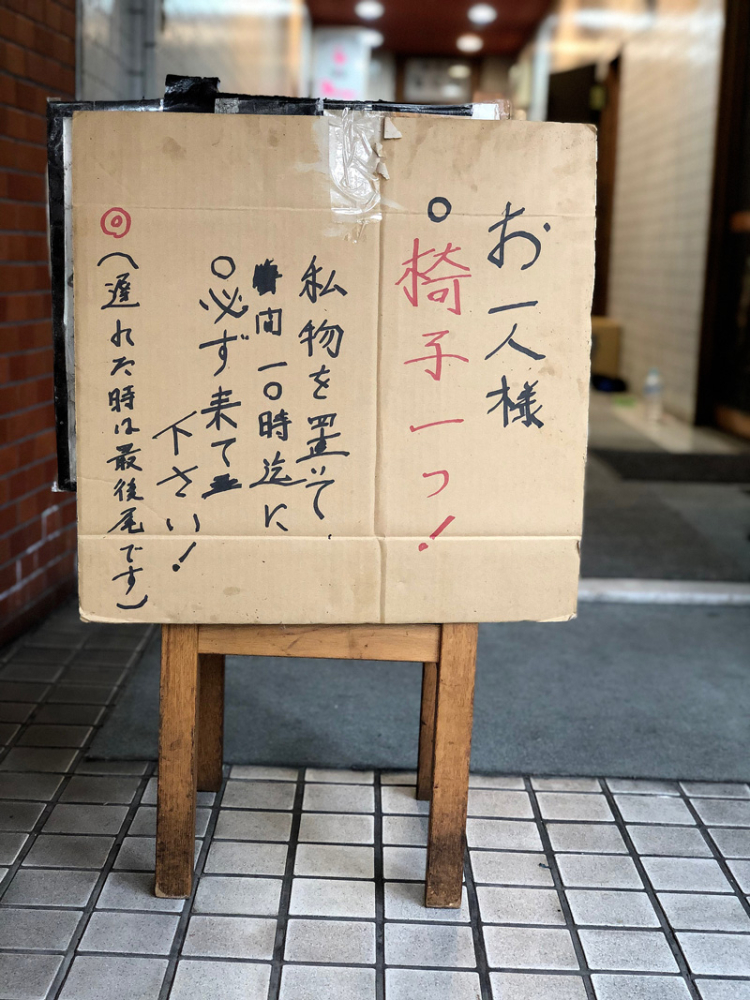 お一人様
○椅子一つ!
私物を置いて
間一〇時迄に
○必ず来て
下さい!
◎(遅れた時は最後尾です)